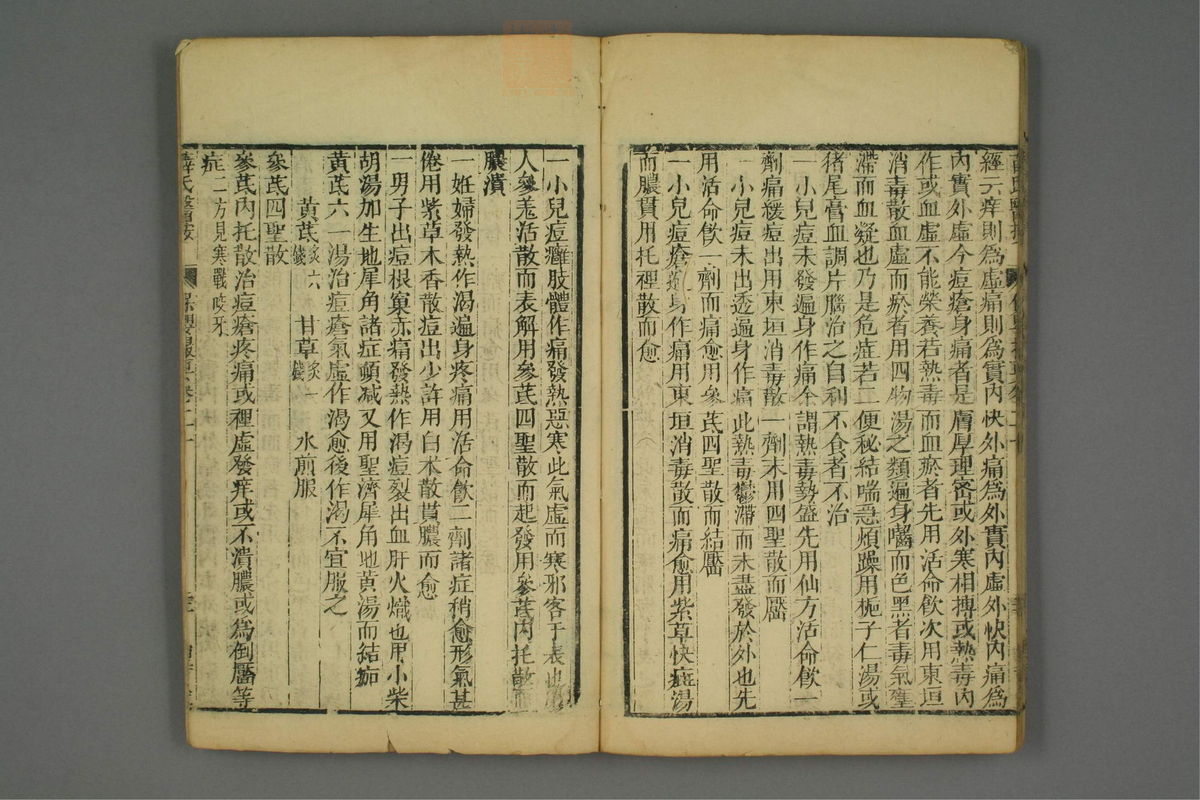 經云痒則爲虛痛則爲實內快外痛爲外實內虛外快內痛爲
內實外虛今痘瘡身痛者是膚厚理密或外寒相搏或熱毒內
作或血虛不能榮養若熱毒而血瘀者先用活命飲次用東垣
消毒散血虛而瘀者用四物湯之類遍身𪙊而色黑者毒氣壅
滯而血凝也乃是危症若二便秘結喘急煩躁用梔子仁湯或
猪尾膏血調片腦治之自利不食者不治
一小兒痘未發遍身作痛余謂熱毒勢盛先用仙方活命飲一
劑痛緩痘出用東垣消毒散一劑末用四聖散而靨
一小兒痘未出透遍身作痛此熱毒鬱滯而未盡發於外也先
用活命飲一劑而痛愈用參芪四聖散而結靨
一小兒痘瘡遍身作痛用東垣消毒散而痛愈用紫草快癍湯
而膿貫用托裡散而愈
一小兒痘癰肢體作痛發熱惡寒此氣虛而寒邪客于表也
人參羗活散而表解用參芪四聖散而起發用參芪內托散而
膿潰
一姙婦發熱作渴遍身疼痛用活命飲二劑諸症稍愈形氣甚
倦用紫草木香散痘出少許用白朮散貫膿而愈
一男子出痘根窠赤痛發熱作渴痘裂出血肝火熾也用小柴
胡湯加生地犀角諸症頓减又用聖濟犀角地黃湯而結痂
黃芪六一湯治痘瘡氣虛作渴愈後作渴不宜服之
黃芪炙六錢 甘草炙一錢 水煎服
參芪四聖散
參芪內托散治痘瘡疼痛或裡虛發痒或不潰膿或爲倒靨等
症二方見寒戰咬牙
薛氏醫按